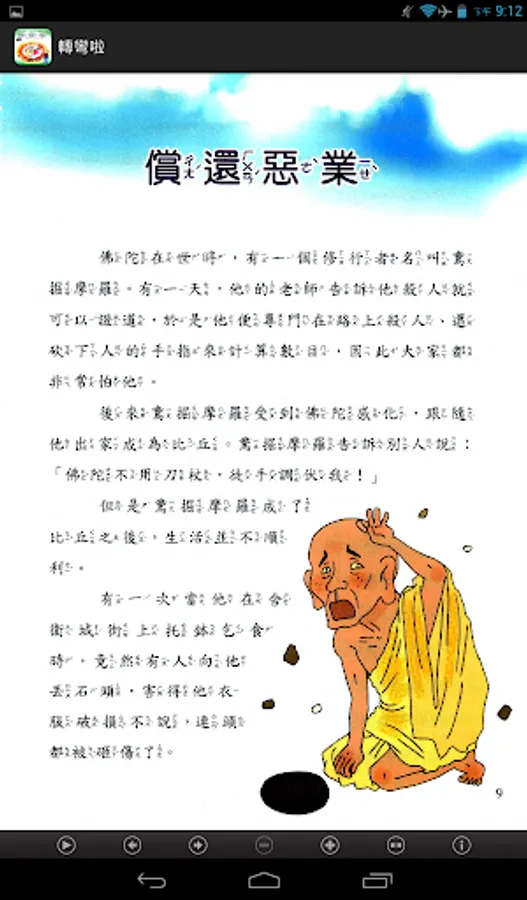 下午 9:12
轉彎啦
償還惡業
佛陀在世時,有一個修行者名叫鴦
掘摩羅。有一天,他的老師告訴他殺人說
可以證道,於是他便專門在路上殺人、還
砍下人的手指來計算數目,因此大家都
非常怕他。
後來鴦掘摩羅受到佛陀感化,跟隨
他出家成為比丘。鴦掘摩羅告訴別人說:
「佛陀不用刀杖,徒手調伏我!」
但是鴦掘摩羅成了
比丘之後,生活並不順
利。
有一次當他在舍
衛城街上托缽乞食
時,竟然有人向他
丟石頭,害得他衣
服破損不說,連頭
都被砸傷了。
9